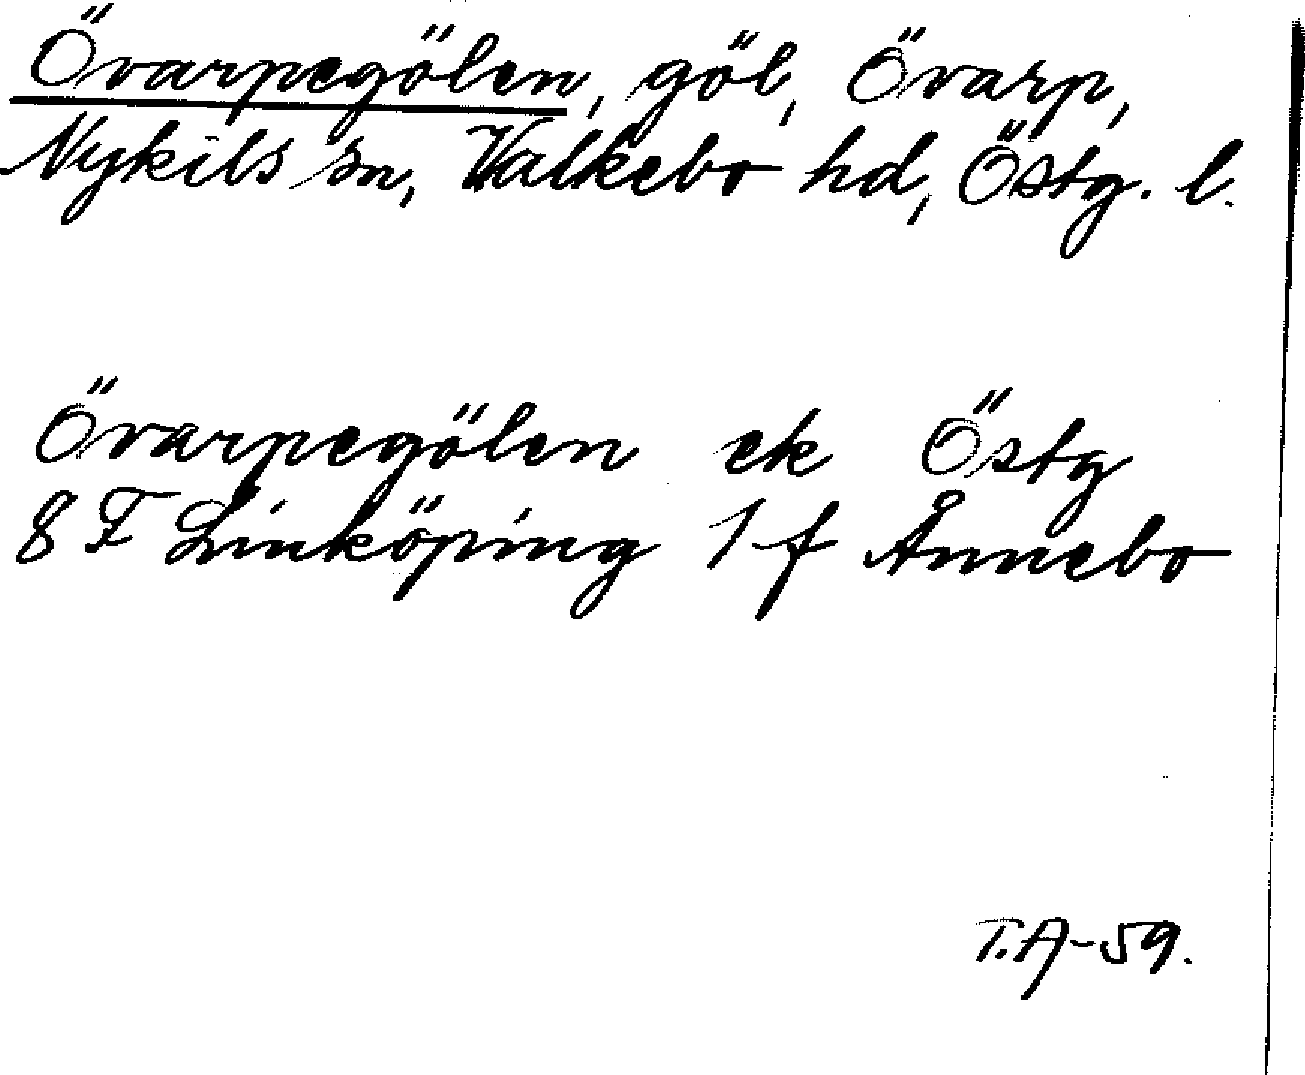 Övarpegölen, göl, Övarp,
Nykils sn, Valkebo hd, Östg. l.
Övarpegölen ek Östg
8 F Linköping 1 f Ånnebo
T.A-59.